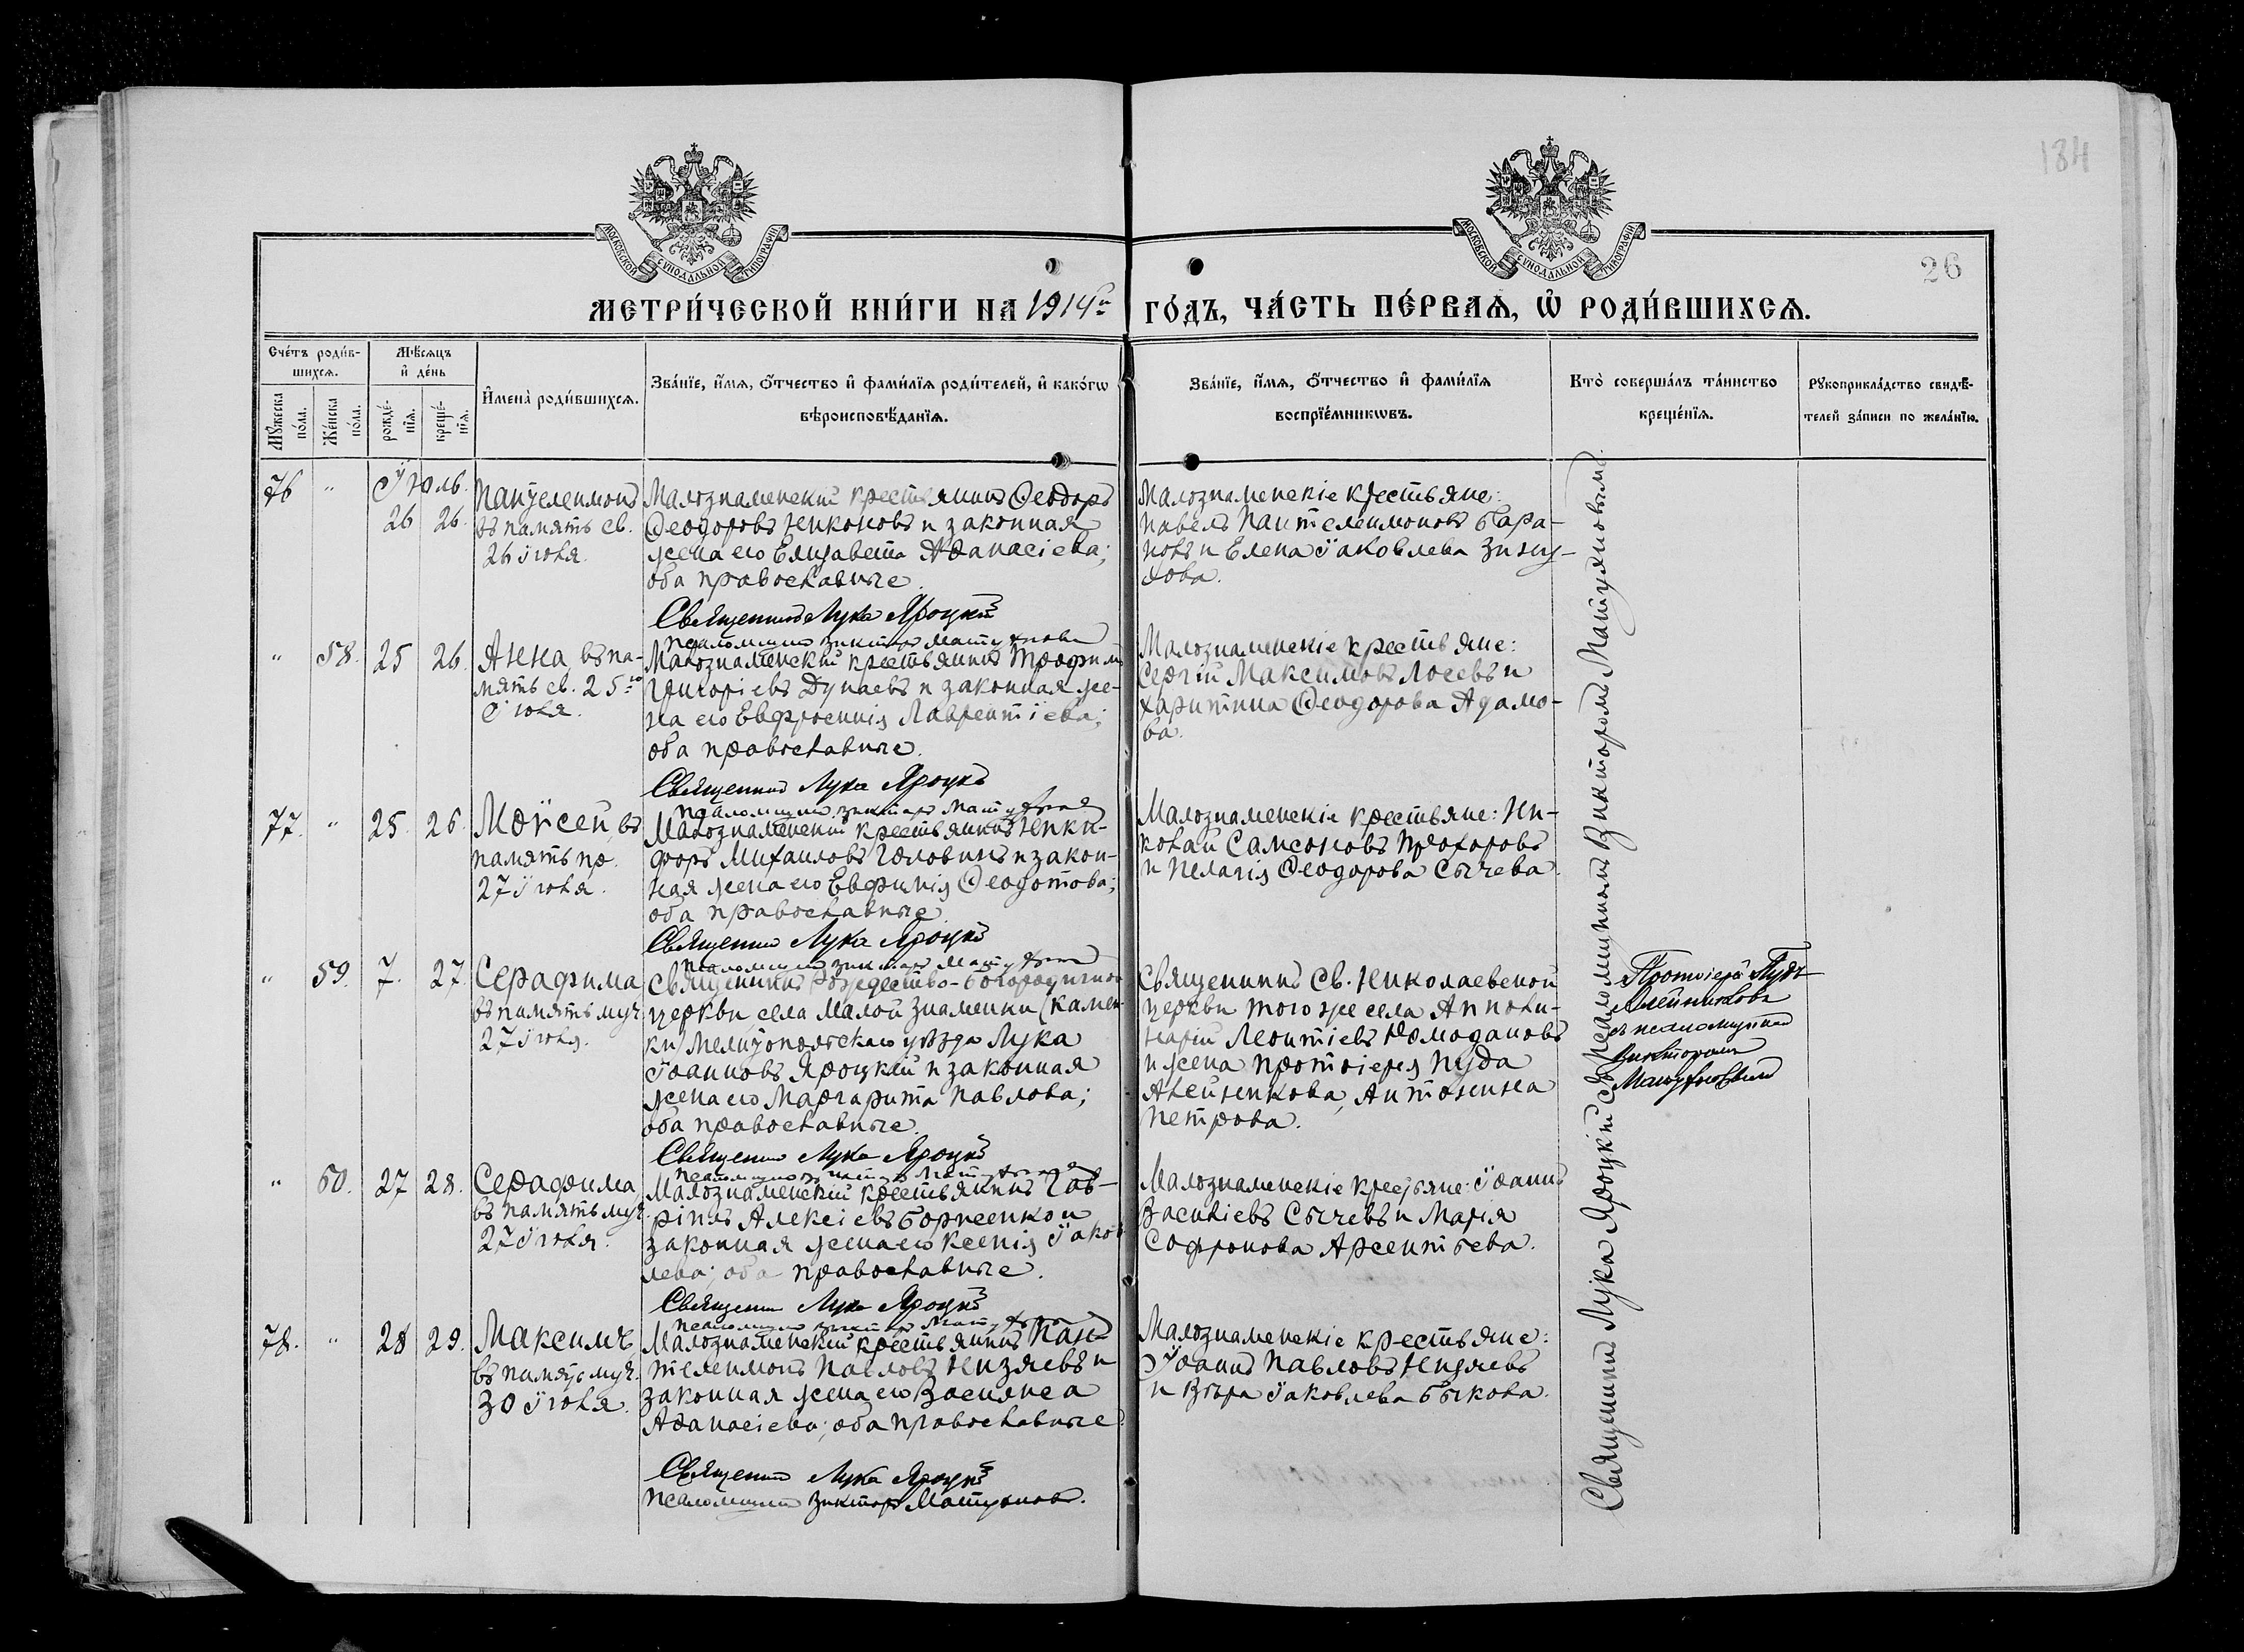 184
МОСКОВСКОЙ СУНОДАЛЬНОЙ ТИПОГРАФІИ
МОСКОВСКОЙ СУНОДАЛЬНОЙ ТИПОГРАФІИ
26
МЕТРИ́ЧЕСКОЙ КНИ́ГИ НА 1914й ГО́ДЪ, ЧА́СТЬ ПЕ́РВАѦ, Ѽ РОДИ́ВШИХСѦ.
Сче́тъ роди́в-
шихсѧ.
Мꙋ́жеска
по́ла.
Же́нска
по́ла.
Мѣ́сѧцъ
и҆ де́нь
рожде́-
нїѧ.
креще́-
нїѧ.
И҆мена̀ роди́вшихсѧ.
Зва́нїе, и҆́мѧ, ѻ҆́тчество и҆ фами́лїѧ роди́телей, и҆ како́гѡ
вѣроисповѣ́данїѧ.
Зва́нїе, и҆́мѧ, ѻ҆́тчество и҆ фами́лїѧ
воспрїе́мникѡвъ.
Кто̀ соверша́лъ та́инство
креще́нїѧ.
Рꙋкоприкла́дство свидѣ́-
телей за́писи по жела́нїю.
76 " Іюль.
26 26.
Пантелеимонъ
въ память св.
26 Іюля.
Малознаменскій крестьянинъ Ѳеодоръ
Ѳеодоровъ Никоновъ и законная
жена его Елизавета Аѳанасіева;
оба православные.
Священникъ Лука Яроцкій
Псаломщикъ Викторъ Матуяновъ
Малознаменскіе крестьяне:
Павелъ Пантелеимоновъ Бара-
новъ и Елена Іаковлева
" 58. 25 26.
Анна, въ па-
мять св. 25го
Іюля.
Малознаменскій крестьянинъ Трофимъ
Григоріевъ Дунаевъ и законная же-
на его Евфросинія Лаврентіева;
оба православные.
Священникъ Лука Яроцкій
Псаломщикъ Викторъ Матуяновъ
Малознаменскіе крестьяне:
Сергій Максимовъ Лосевъ и
Харитина Ѳеодорова Адамо-
ва.
77. " 25. 26.
Моѵсей, въ
память пр.
27 Іюля.
Малознаменскій крестьянинъ Ники-
форъ Михаиловъ Головинъ и закон-
ная жена его Евфимія Ѳеодотова;
оба православные.
Священникъ Лука Яроцкій
Псаломщикъ Викторъ Матуяновъ
Малознаменскіе крестьяне: Ни-
колай Самсоновъ Прохоровъ
и Пелагія Ѳеодорова Сычева.
" 59. 7. 27.
Серафима
въ память муч.
27 Іюля.
Священникъ Рождество-Богородичной
церкви села Малой Знаменки (Камен-
ки) Мелитопольскаго уѣзда Лука
Іоанновъ Яроцкій и законная
жена его Маргарита Павлова;
оба православные.
Священникъ Лука Яроцкій
Псаломщикъ Викторъ Матуяновъ
Священникъ Св. Николаевской
церкви того же села Аполли-
нарій Леонтіевъ Домодановъ
и жена протоіерея Пуда
Алейникова, Антонина
Петрова.
Протоіерей Пудъ
Алейниковъ
съ псаломщикомъ
Викторомъ
Матуяновымъ
" 60. 27 28.
Серафима
въ память муч.
27 Іюля.
Малознаменскій крестьянинъ Гав-
ріилъ Алексіевъ Борисенко и
законная жена его Ксенія Іаков-
лева; оба православные.
Священникъ Лука Яроцкій
Псаломщикъ Викторъ Матуяновъ
Малознаменскіе крестьяне: Іоаннъ
Василіевъ Сычевъ и Марія
Софронова Арсентьева.
78. " 28 29.
Максимъ
въ память муч.
30 Іюля.
Малознаменскій крестьянинъ Пан-
телеимонъ Павловъ Низяевъ и
законная жена его Васильса
Аѳанасіева; оба православные
Священникъ Лука Яроцкій
Псаломщикъ Викторъ Матуяновъ.
Малознаменскіе крестьяне:
Іоаннъ Павловъ Низяевъ
и Вѣра Іаковлева Быкова.
Священникъ Лука Яроцкій съ псаломщикомъ Викторомъ Матуяновымъ.